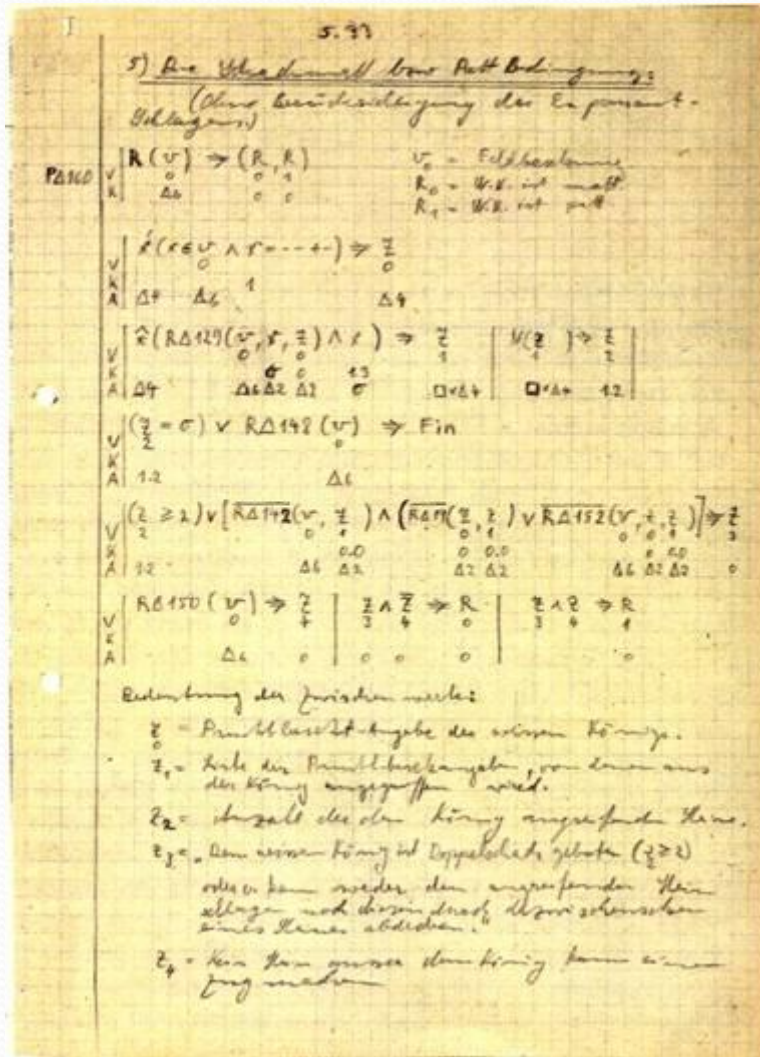 I
5.33
5) Die Schachmatt bzw Patt Bedingung:
(Ohne Berücksichtigung des En passant-
Schlagens.)
PΔ160 R(v) ⇒ (R, R) v₀ = Feldbesetzung
V 0 0 1 R₀ = W.K. ist matt
K Δ6 0 0 R₁ = W.K. ist patt
x́(x ∈ v ∧ x = --- + -) ⇒ Z
V 0 0
K 1
A Δ4 Δ6 Δ4
x̂(RΔ129(v, x, Z) ∧ x) ⇒ Z | N(Z) ⇒ Z
V 0 0 1 1 2
K σ 0 1.3
A Δ4 Δ6 Δ2 Δ2 σ □×Δ4 □×Δ4 1.2
(Z = σ) ∨ RΔ148(v) ⇒ Fin
V 2 0
K
A 1.2 Δ6
(Z ≥ 2) ∨ [RΔ142(v, Z) ∧ (RΔ19(Z, Z) ∨ RΔ152(v, Z, Z))] ⇒ Z
V 2 0 1 0 1 0 0 1 3
K 0.0 0 0.0 0 0.0
A 1.2 Δ6 Δ2 Δ2 Δ2 Δ6 Δ2 Δ2 0
RΔ150(v) ⇒ Z | Z ∧ Z ⇒ R | Z ∧ Z ⇒ R
V 0 4 3 4 0 3 4 1
K
A Δ6 0 0 0 0 0
Bedeutung der Zwischenwerte:
Z₀ = Punktbesetzt-Angabe des weissen Königs.
Z₁ = Liste der Punktbesetztangaben, von denen aus
der König angegriffen wird.
Z₂ = Anzahl der den König angreifenden Steine.
Z₃ = „Dem weissen König ist Doppelschach geboten (Z₂ ≥ 2)
oder er kann weder den angreifenden Stein
schlagen noch diesen durch Dazwischenziehen
eines Steines abdecken."
Z₄ = Kein Stein ausser dem König kann einen
Zug machen